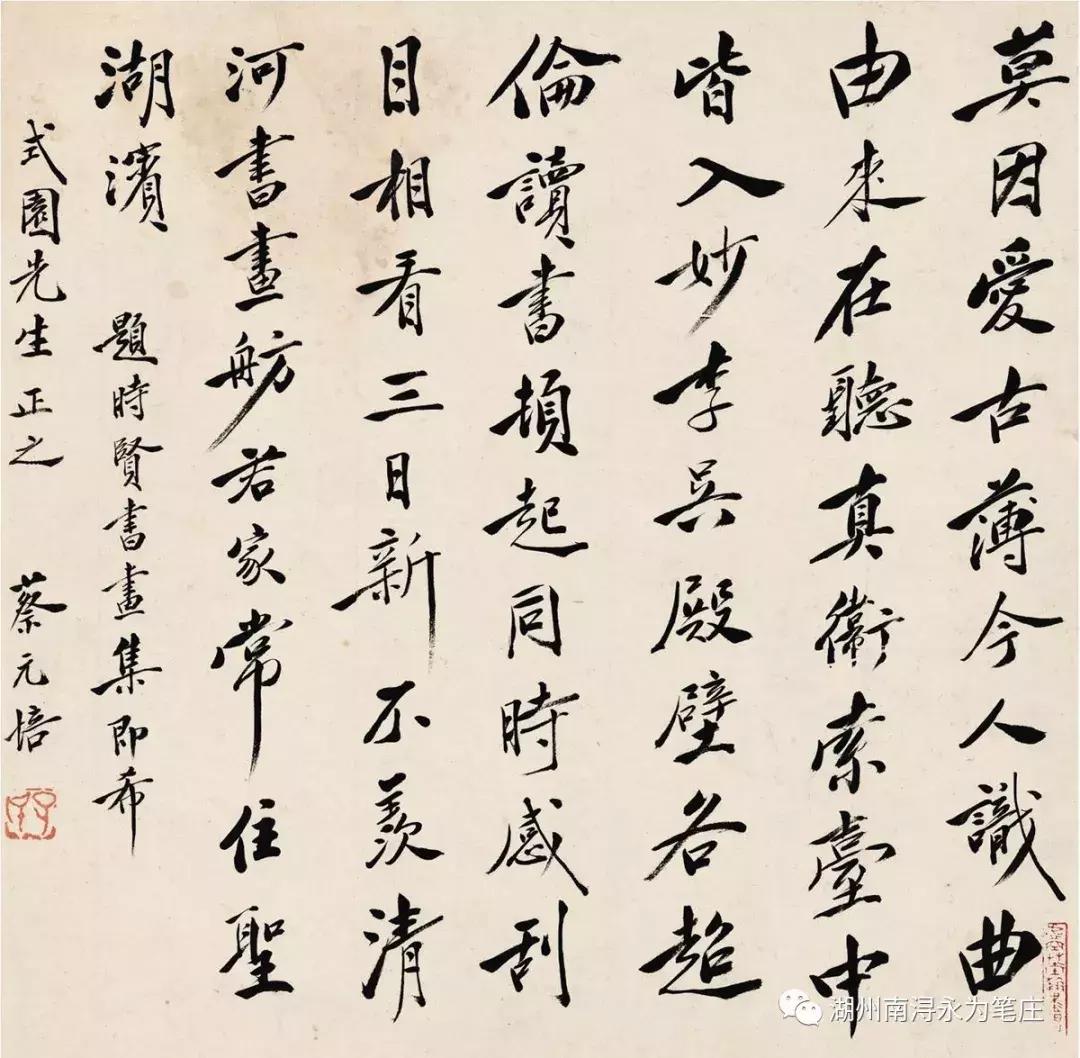 莫因愛古薄今人識曲
由來在聽真衛索臺中
皆入妙李吴殿壁各超
倫讀書頓起同時感刮
目相看三日新不羨清
河書畫舫若家常住聖
湖濱 題時賢書畫集即希
式園先生正之 蔡元培
湖州南浔永为笔庄